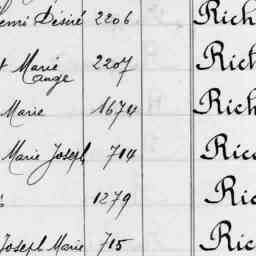 Désiré 2206 Rich
Marie
Ange 2207 Rich
Marie 1674 Rich
Marie Joseph 714 Rice
1279 Ric
Joseph Marie 715 Ric